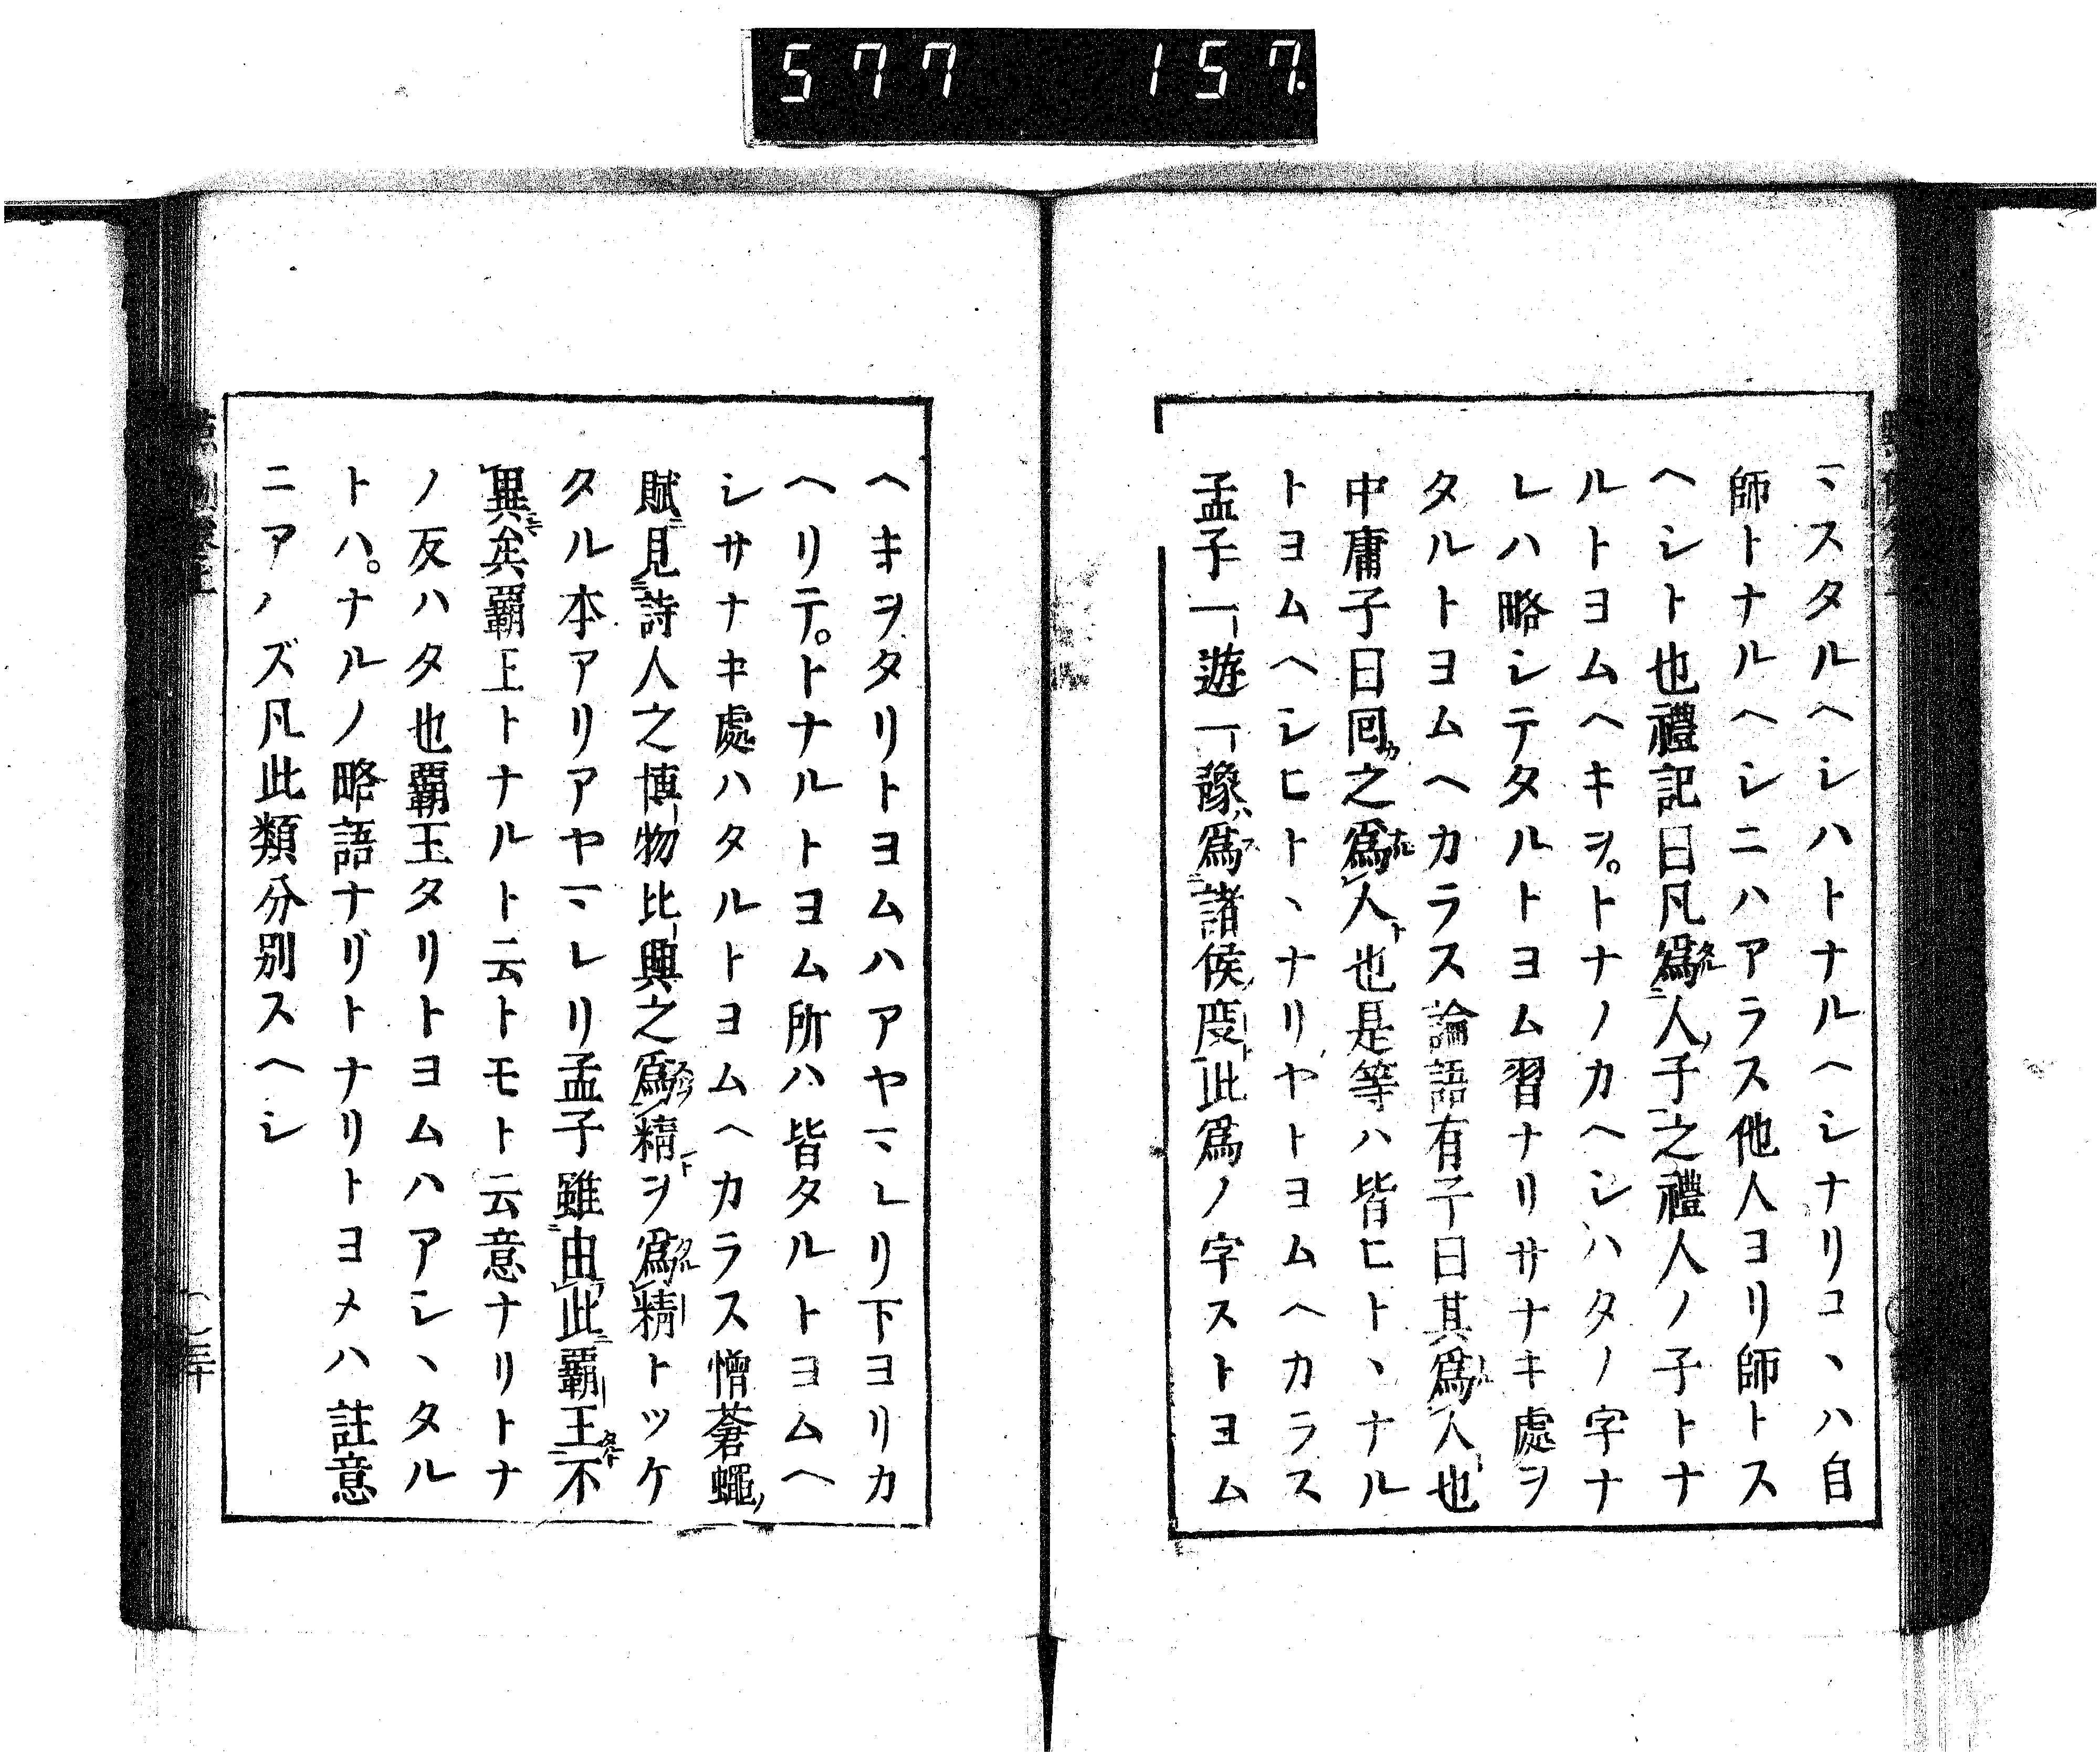 577 157.
マスタルヘシハトナルヘシナリコヽハ自
師トナルヘシニハアラス他人ヨリ師トス
ヘシト也禮記曰凡爲人子之禮人ノ子トナ
ルトヨムヘキヲ。トナノカヘシハタノ字ナ
レハ略シテタルトヨム習ナリサナキ處ヲ
タルトヨムヘカラス論語有子曰其爲人也
中庸子曰回之爲人也是等ハ皆ヒトヽナル
トヨムヘシヒトヽナリヤトヨムヘカラス
孟子一遊一豫爲諸侯度此爲ノ字ストヨム
ヘキヲタリトヨムハアヤマレリ下ヨリカ
ヘリテ。トナルトヨム所ハ皆タルトヨムヘ
シサナキ處ハタルトヨムヘカラス憎蒼蠅
賦見詩人之博物比興之爲精ヲ爲精トツケ
タル本アリアヤマレリ孟子雖由此霸王不
異矣霸王トナルト云トモト云意ナリトナ
ノ反ハタ也霸王タリトヨムハアシヽタル
トハ。ナルノ略語ナリトナリトヨメハ註意
ニアハズ凡此類分別スヘシ